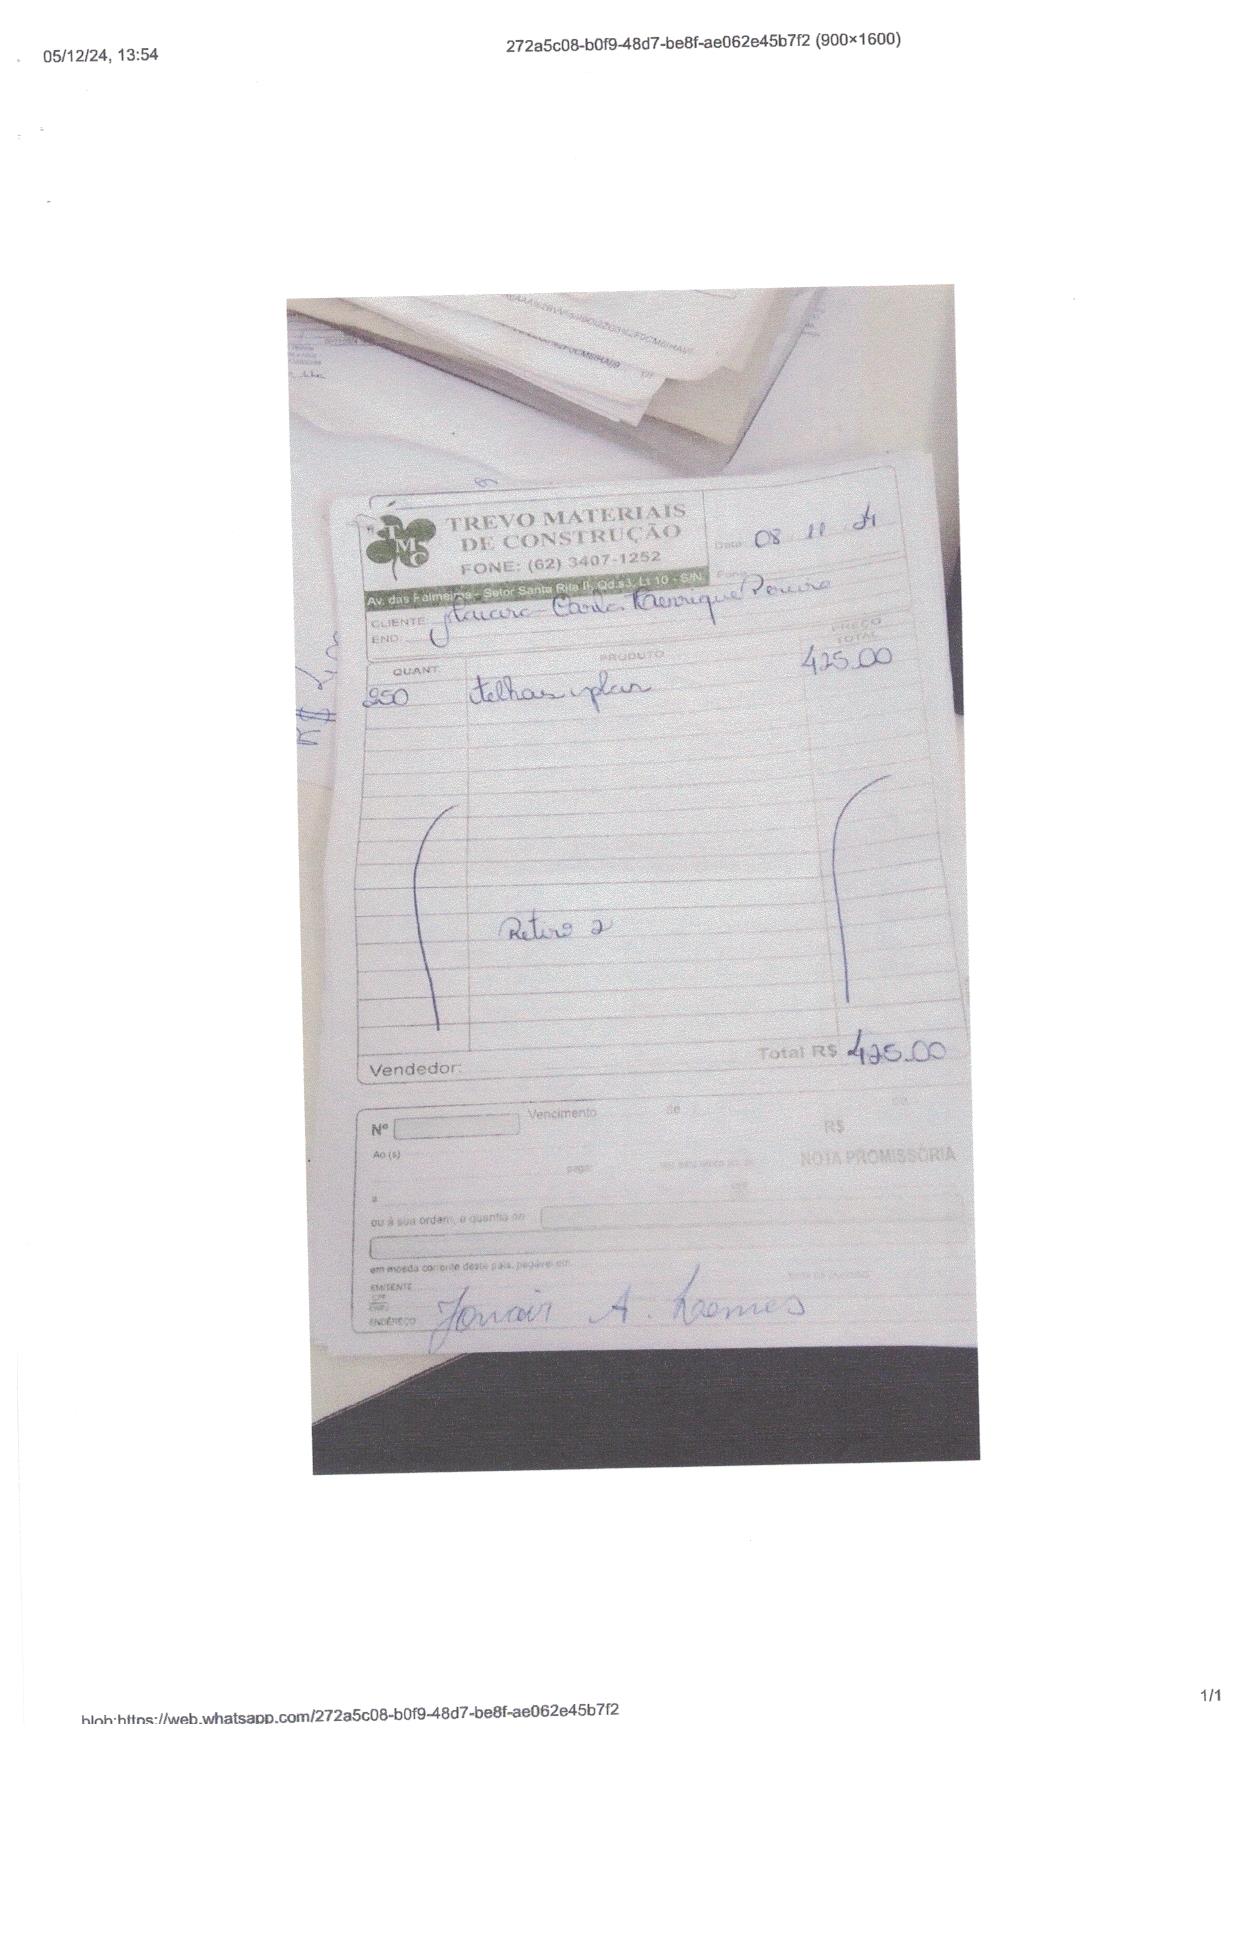 05/12/24, 13:54
272a5c08-b0f9-48d7-be8f-ae062e45b7f2 (900×1600)
TMC
TREVO MATERIAIS
DE CONSTRUÇÃO
FONE: (62) 3407-1252
Data 08 11 24
Av. das Palmeiras - Setor Santa Rita II, Qd.s3, Lt 10 - S/N. Fone
CLIENTE Carlos Henrique Pereira
END.
QUANT. PRODUTO PREÇO TOTAL
250 telhas plan 425.00
Retiro 2
Vendedor: Total R$ 425.00
Nº Vencimento de de
R$
Ao(s) NOTA PROMISSÓRIA
pagar
a
ou à sua ordem, a quantia de
em moeda corrente deste país, pagável em
EMITENTE
CPF
CNPJ
ENDEREÇO
A.
blob:https://web.whatsapp.com/272a5c08-b0f9-48d7-be8f-ae062e45b7f2
1/1